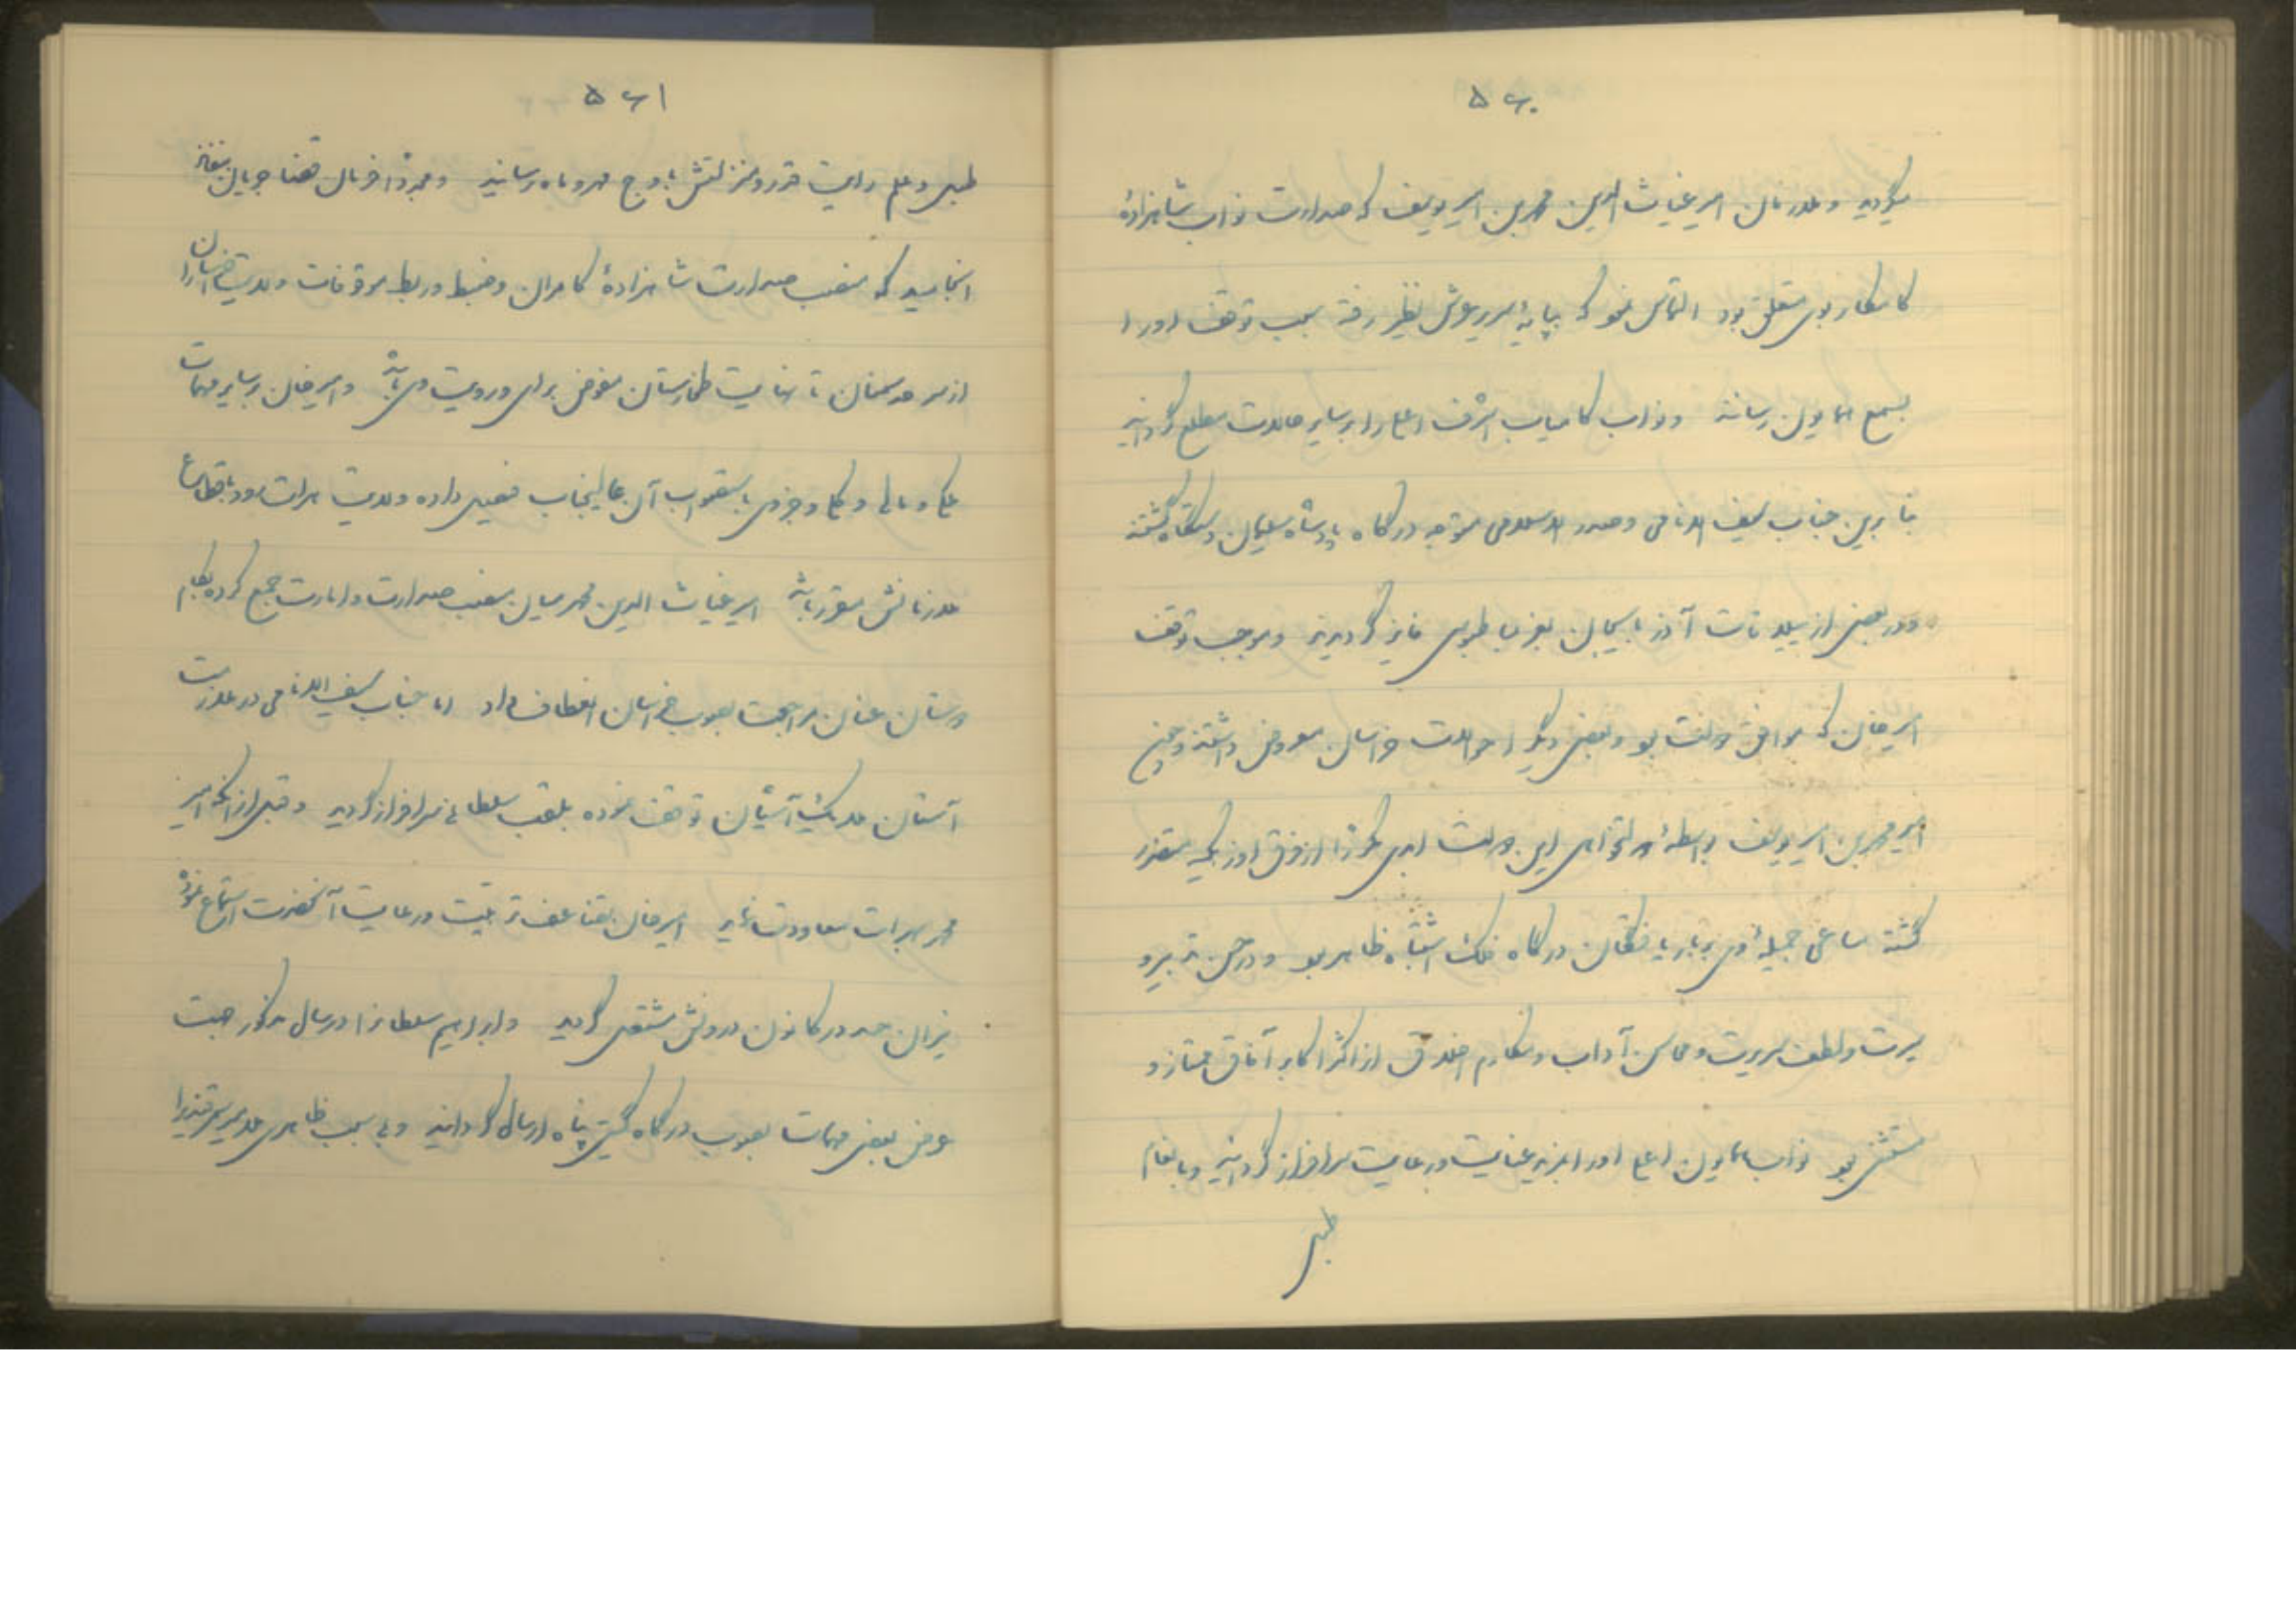 ۵۶۰
میگردید و علاء زمان امیر غیاث الدین محمد بن امیر یوسف که صدارت نواب شاهزادهٔ
کامکار بوی متعلق بود التماس نمود که بپایهٔ سریر عرش نظیر رفته سبب توقف او را
بسمع همایون رساند و نواب کامیاب اشرف اعلی را بر سایر حالات مطلع گرداند
بنابرین جناب سیف الانامی و صدر الاسلامی متوجه درگاه پادشاه سلیمان دستگاه گشته
و در بعضی از ییلاقات آذربایجان بعز بساط بوسی فایز گردیدند و موجب توقف
امیر خان که موافق دولت بود و بعضی دیگر احوالات خراسان معروض داشتند و چون
امیر محمد بن امیر یوسف بواسطهٔ دولتخواهی این دولت ابدی مکررا از فرق اوزبکیه متضرر
گشته مساعی جمیلهٔ وی بر بار یافتگان درگاه فلک اشتباه ظاهر بود و در حسن تدبیر و
سیرت و لطف سریرت و محاسن آداب و مکارم اخلاق از اکثر اکابر آفاق ممتاز و
مستثنی بود نواب همایون اعلی او را بمزید عنایت و رعایت سرافراز گردانید و بانعام
طبل
۵۶۱
طبل و علم رایت قدر و منزلتش باوج مهر و ماه رسانید و مجددا فرمان قضا جریان بنفاذ
انجامید که منصب صدارت شاهزادهٔ کامران و ضبط و ربط موقوفات ولایت خراسان را
از سرحد سمنان تا نهایت طخارستان مفوض برای و رویت وی باشد و امیر خان بر سایر مهمات
ملکی و مالی و کلی و جزوی باستصواب آن عالیجناب فیصل داده ولایت هرات رود باقطاع
ملازمانش مقرر باشد امیر غیاث الدین محمد میان منصب صدارت و امارت جمع کرده بکام
دوستان عنان مراجعت بصوب خراسان انعطاف داد اما جناب سیف الانامی در ملازمت
آستان ملایک آشیان توقف نموده بلقب سلطانی سرافراز گردید و قبل از آنکه امیر
محمد بهرات معاودت نماید امیر خان مضاعف تربیت و رعایت آنحضرت استماع نموده
نیران حسد در کانون درونش مشتعل گردید و ابراهیم سلطان را در سال مذکور جهت
عرض بعضی مهمات بصوب درگاه گیتی پناه ارسال گردانید و بی سبب ظاهری